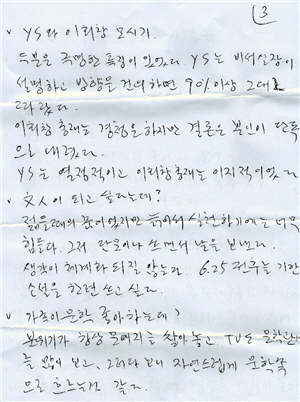 3
v YS와 이회창 모시기.
두분은 극명한 특징이 있었다 YS는 비서실장이
설명하고 방향을 건의하면 90% 이상 그대로
따라줬다.
이회창 총재는 경청을 하지만 결론은 본인이 단독
으로 내렸다.
YS는 열정적이고 이회창 총재는 이지적이었다
v 文人이 되고 싶다는데?
젊을때의 꿈이었지만 늙어서 실현하기에는 너무
힘들다. 그저 단문이나 쓰면서 낮을 보낸다.
생각이 체계화 되질 않는다 6.25 전후는 기한
소설을 한편 쓰고 싶다.
v 가족이 문학 좋아하는데?
분위기가 항상 문예지를 쌓아 놓고 TV도 문학
를 많이 보고, 그러다 보니 자연스럽게 문학쪽
으로 흐르는것 같다.